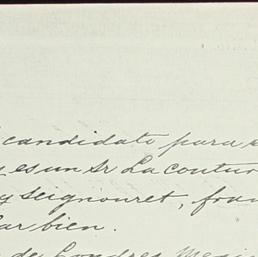 candidato para
es un Sr Lacoutur
y Seignouret, fran
lar bien.
de Londres Mexi